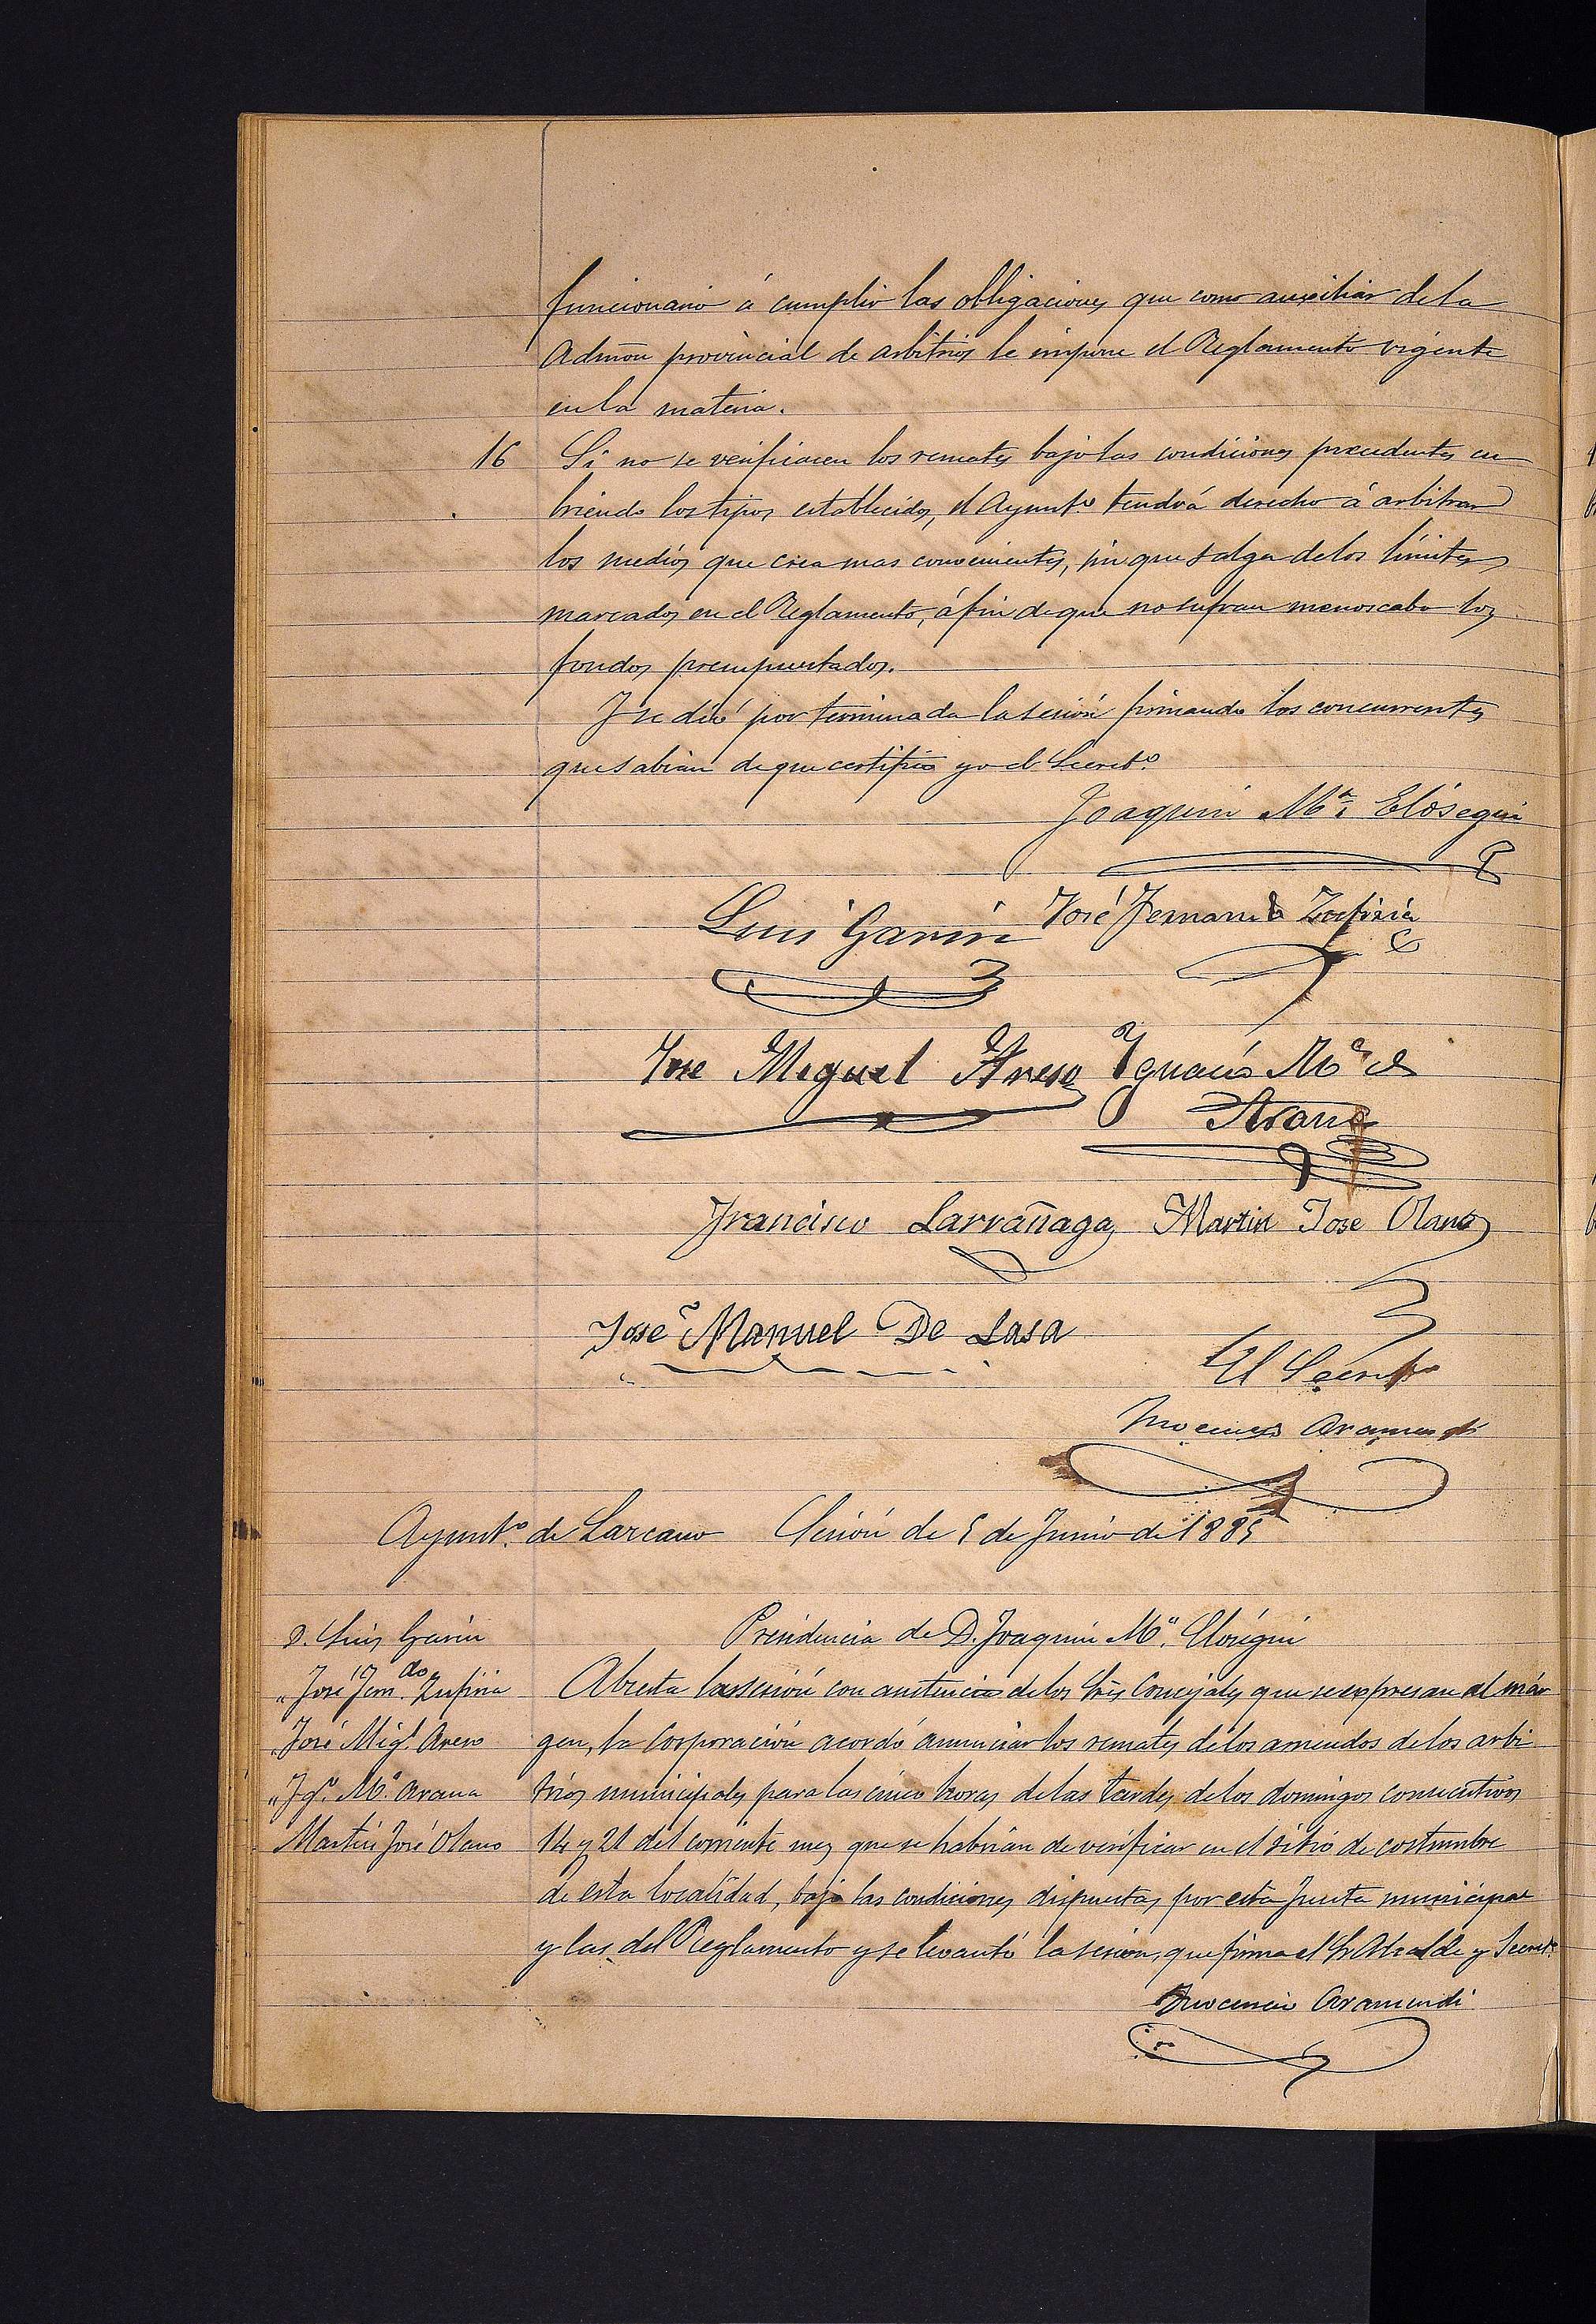 funcionario á cumplir las obligaciones que como auxiliar de la
Admon provincial de arbitrios le impone el Reglamento vigente
en la materia.
16 Si no se verificasen los remates bajo las condiciones precedentes cu
briendo los tipos establecidos, el Ayunt.º tendrá derecho á arbitrar
los medios que crea mas convenientes, sin que salga de los límites
marcados en el Reglamento, á fin de que no sufran menoscabo los
fondos presupuestados.
Y se dió por terminada la sesión firmando los concurrentes
que sabian de que certifico yo el Secret.º
Joaquin M.ª Elósegui
Luis Garin José Fernando Zufiria
Jose Miguel Areso Ygnacio M.ª de
Arana
Francisco Larrañaga Martin Jose Olano
José Manuel De Lasa
El Secret.º
Inocencio Aramendi
Ayunt.º de Lazcano Sesión de 5 de Junio de 1885
Presidencia de D. Joaquin M.ª Elósegui
D. Luis Garin
" José Fern.do Zufiria
" José Mig.l Areso
" Ig.º M.ª Arana
Martin José Olano
Abierta la sesión con asistencia de los Sres Concejales que se expresan al már
gen, la Corporación acordó anunciar los remates de los arriendos de los arbi
trios municipales para las cinco horas de las tardes de los domingos consecutivos
14 y 21 del corriente mes que se habrian de verificar en el sitio de costumbre
de esta localidad, bajo las condiciones dispuestas por esta Junta municipal
y las del Reglamento y se levantó la sesion, que firma el Sr Alcalde y Secret.º
Inocencio Aramendi